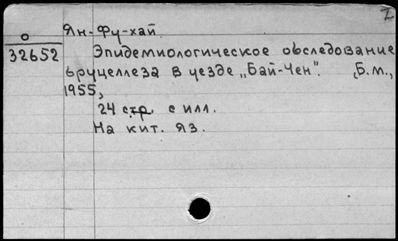 Z
Ян-Фу-хай.
О
32652
Эпидемиологическое обследование
бруцеллеза в уезде „Бай-Чен". [Б.м.,
1955,
24 стр. с илл.
На кит. яз.